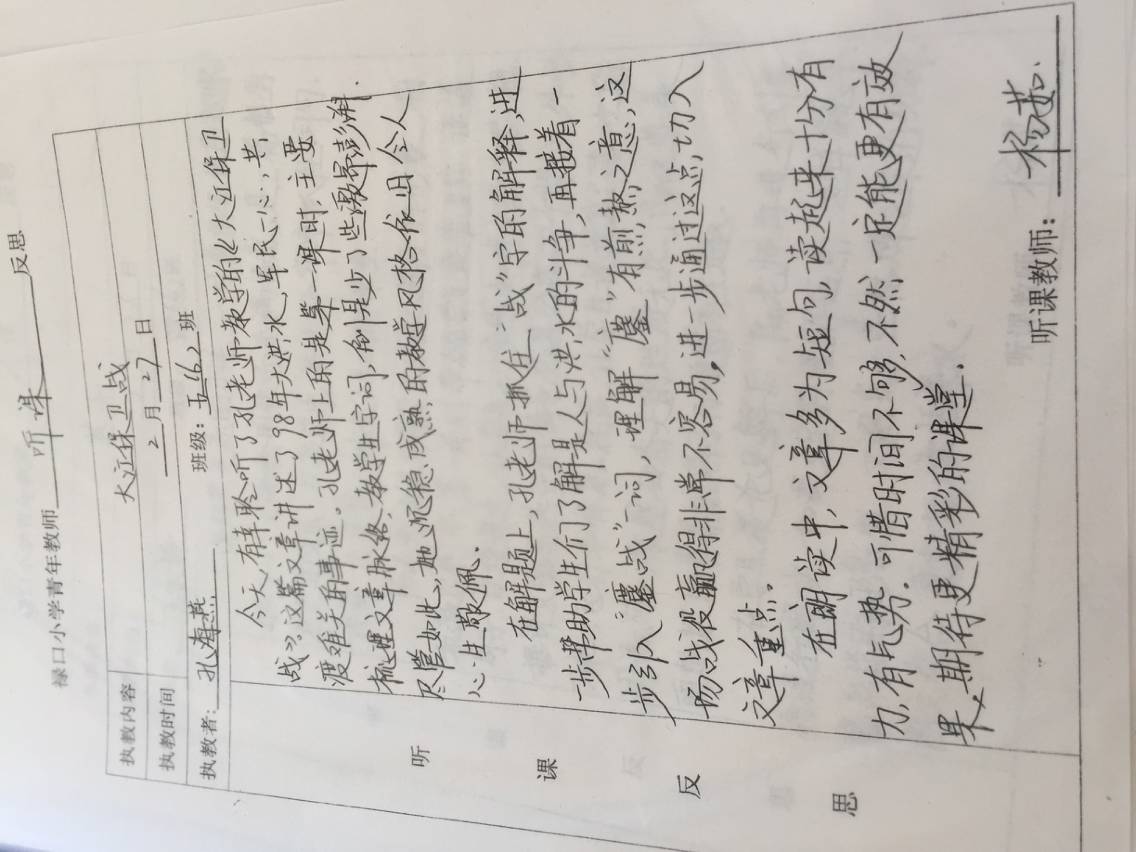 禄口小学青年教师 听课 反思
执教内容 大江保卫战
执教时间 2月27日
执教者: 孔海燕 班级: 五(6)班
今天,有幸聆听了孔老师教学的《大江保卫
战》,这篇文章讲述了98年大洪水,军民一心,共
渡难关的事迹。孔老师上的是第一课时,主要
梳理文章脉络,教学生字词,倒是少了些激昂澎湃.
尽管如此,她沉稳成熟的教学风格依旧令人
心生敬佩.
在解题上,孔老师抓住“战”字的解释,进
一步帮助学生们了解是人与洪水的斗争,再接着一
步引入“鏖战”一词,理解“鏖”有煎熬之意,这
场战役赢得非常不容易,进一步通过这点,切入
文章重点。
在朗读中,文章多为短句,读起来十分有
力,有气势.可惜时间不够,不然一定能更有效
果,期待更精彩的课堂.
听课反思
听课教师: 杨茹.